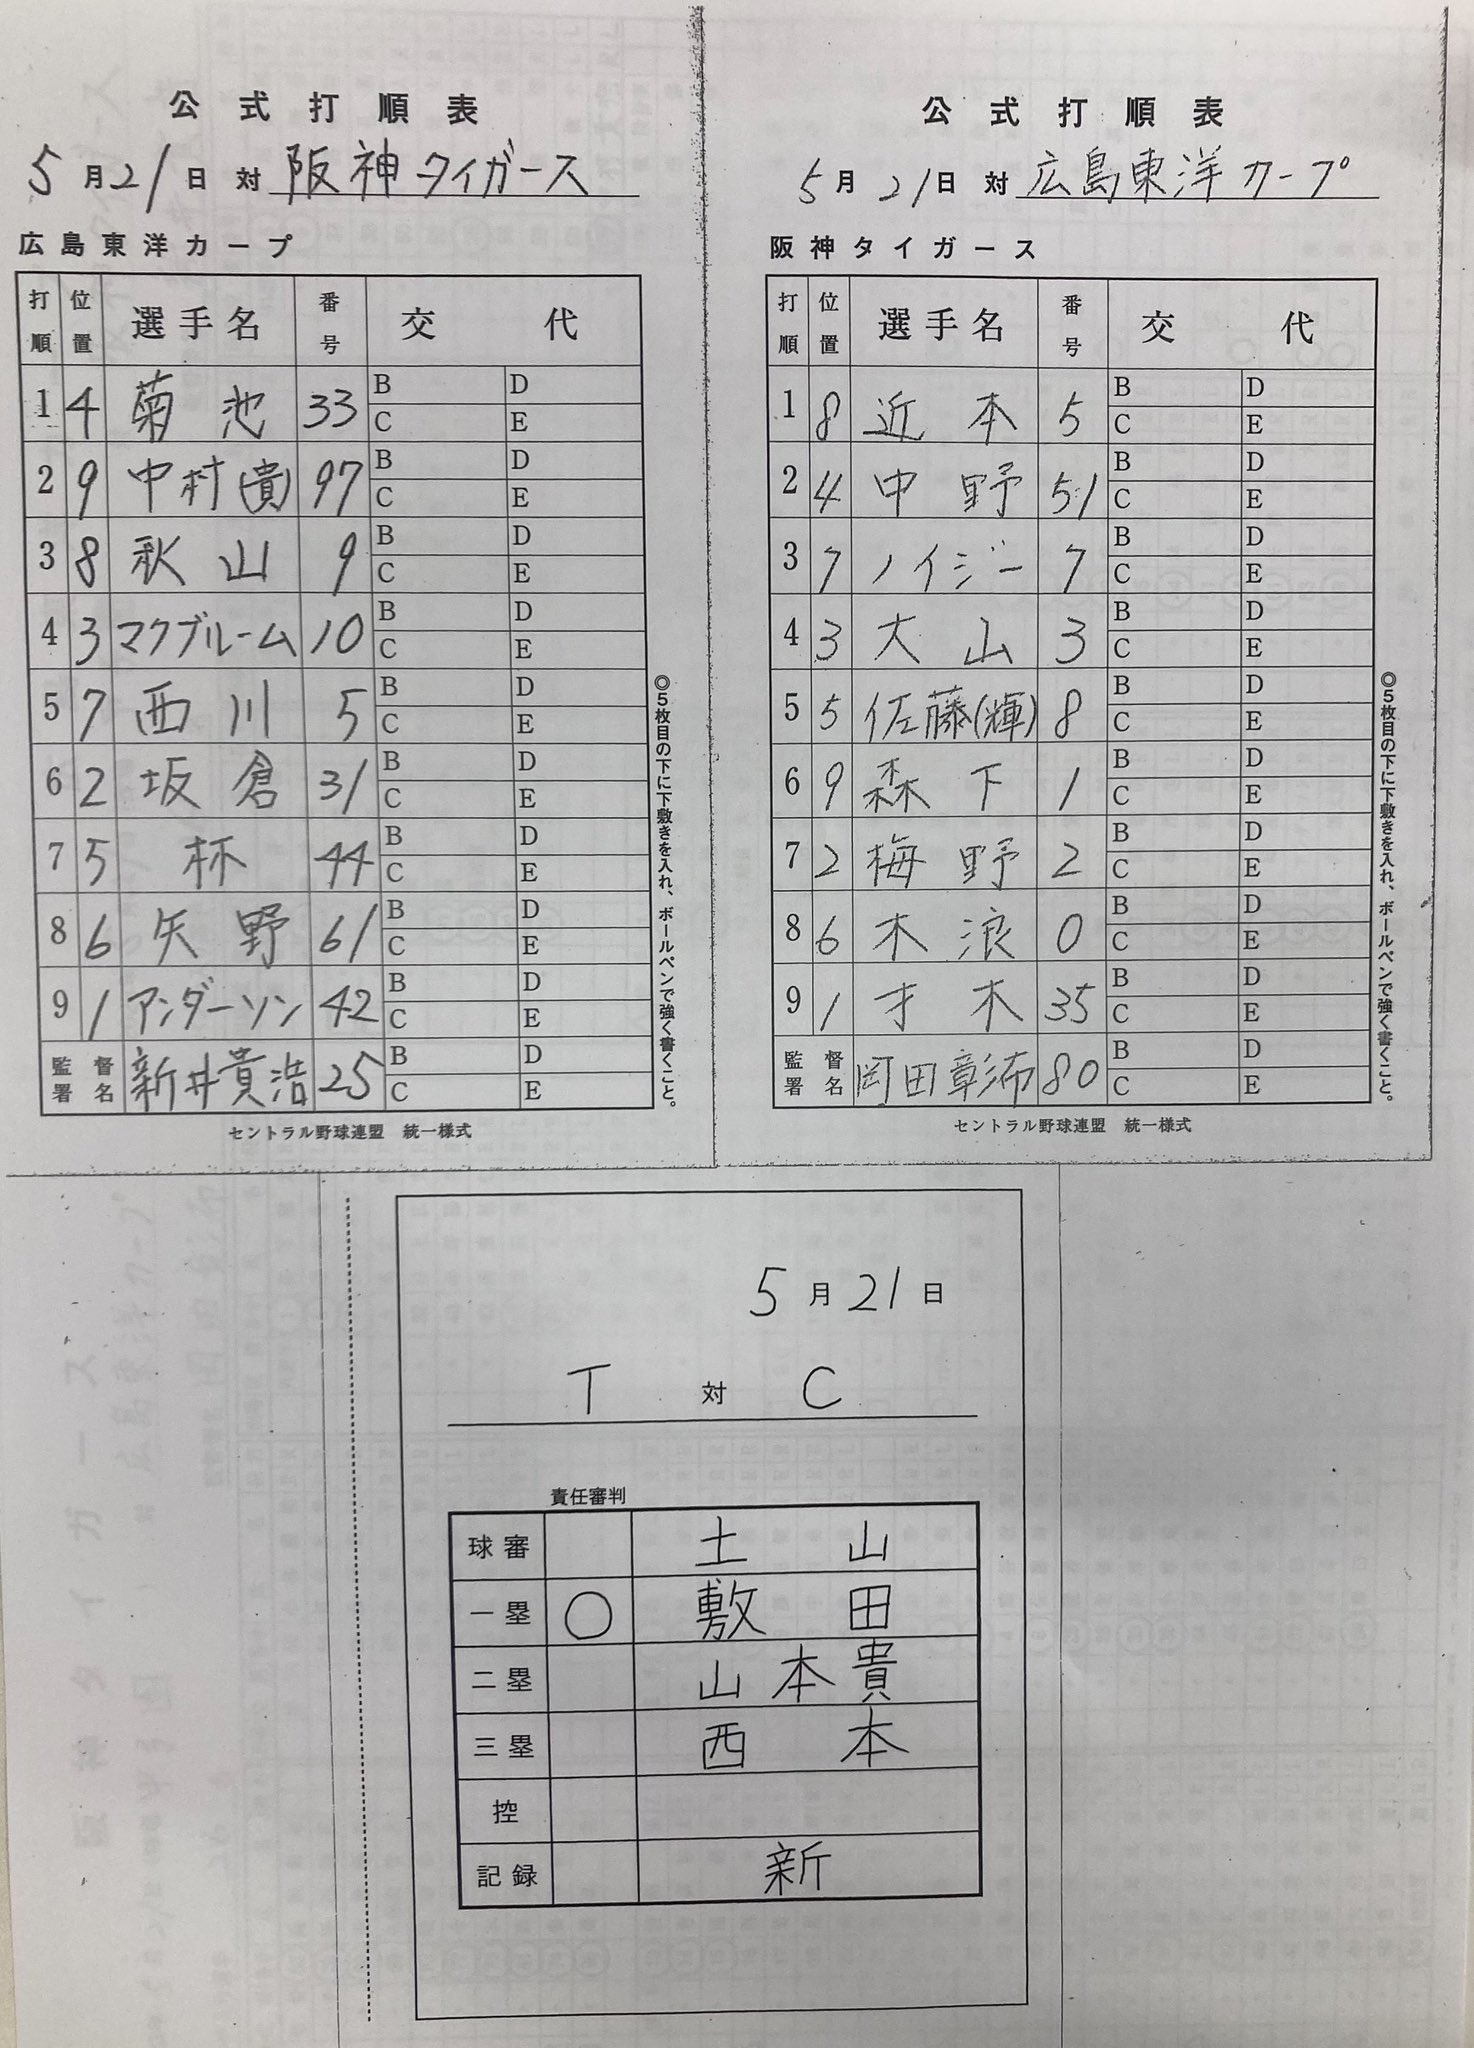 公式打順表
5月21日 対 阪神タイガース
広島東洋カープ
打順 位置 選手名 番号 交代
1 4 菊池 33 B D
C E
2 9 中村(貴) 97 B D
C E
3 8 秋山 9 B D
C E
4 3 マクブルーム 10 B D
C E
5 7 西川 5 B D
C E
6 2 坂倉 31 B D
C E
7 5 林 44 B D
C E
8 6 矢野 61 B D
C E
9 1 アンダーソン 42 B D
C E
監督署名 新井貴浩 25 B D
C E
◎5枚目の下に下敷きを入れ、ボールペンで強く書くこと。
セントラル野球連盟 統一様式
公式打順表
5月21日 対 広島東洋カープ
阪神タイガース
打順 位置 選手名 番号 交代
1 8 近本 5 B D
C E
2 4 中野 51 B D
C E
3 7 ノイジー 7 B D
C E
4 3 大山 3 B D
C E
5 5 佐藤(輝) 8 B D
C E
6 9 森下 1 B D
C E
7 2 梅野 2 B D
C E
8 6 木浪 0 B D
C E
9 1 才木 35 B D
C E
監督署名 岡田彰布 80 B D
C E
◎5枚目の下に下敷きを入れ、ボールペンで強く書くこと。
セントラル野球連盟 統一様式
5月21日
T 対 C
責任審判
球審 土山
一塁 ○ 敷田
二塁 山本貴
三塁 西本
控
記録 新